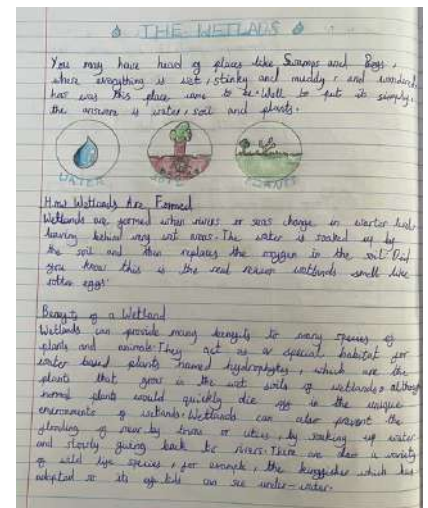 THE WETLADS
You may have head of places like Swamps and Bogs,
where everything is wet, stinky and muddy, and wondered
how was this place came to be. Well to put it simply,
the answere is water, soil and plants.
WATER SOIL PLANTS
How Wetlands Are Formed
Wetlands are formed when rivers or seas change in warter levels
leaving behind very wet areas. The water is soaked up by
the soil and then replaces the oxygen in the soil. Did
you know this is the real reason wetlands smell like
rotten eggs.
Benefits of a Wetland
Wetlands can provide many benefits to many species of
plants and animals. They act as a special habitat for
water based plants named hydrophytes, which are the
plants that grow in the wet soils of wetlands, although
normal plants would quickly die off in the unique
enviroments of wetlands. Wetlands can also prevent the
flooding of near by towns or cities, by soaking up water
and slowly giving back to rivers. There are also a variety
of wild life species, for example, the kingfisher which has
adapted so its eye lids can see under-water.